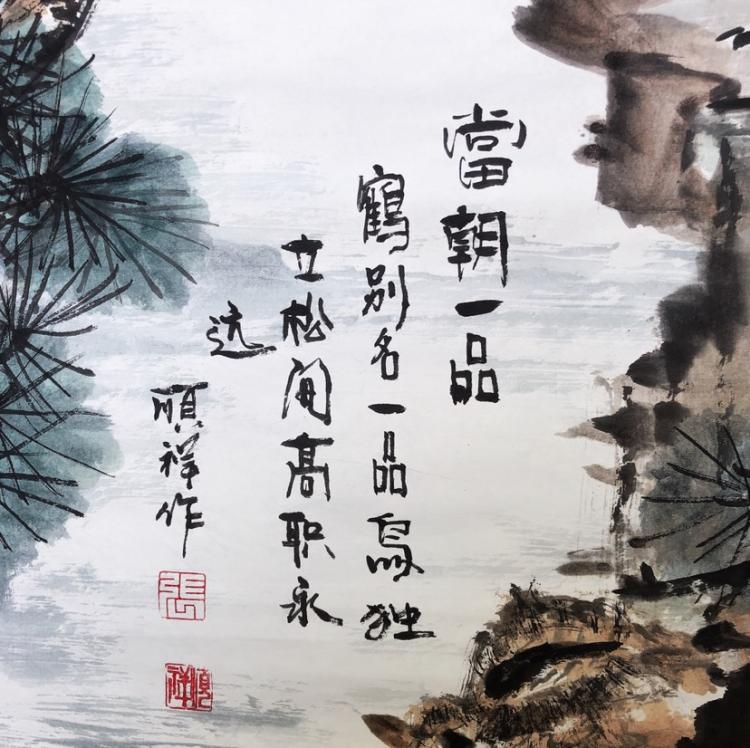 當朝一品
鶴别名一品鳥独
立松间高职永
远
順祥作
張
順祥